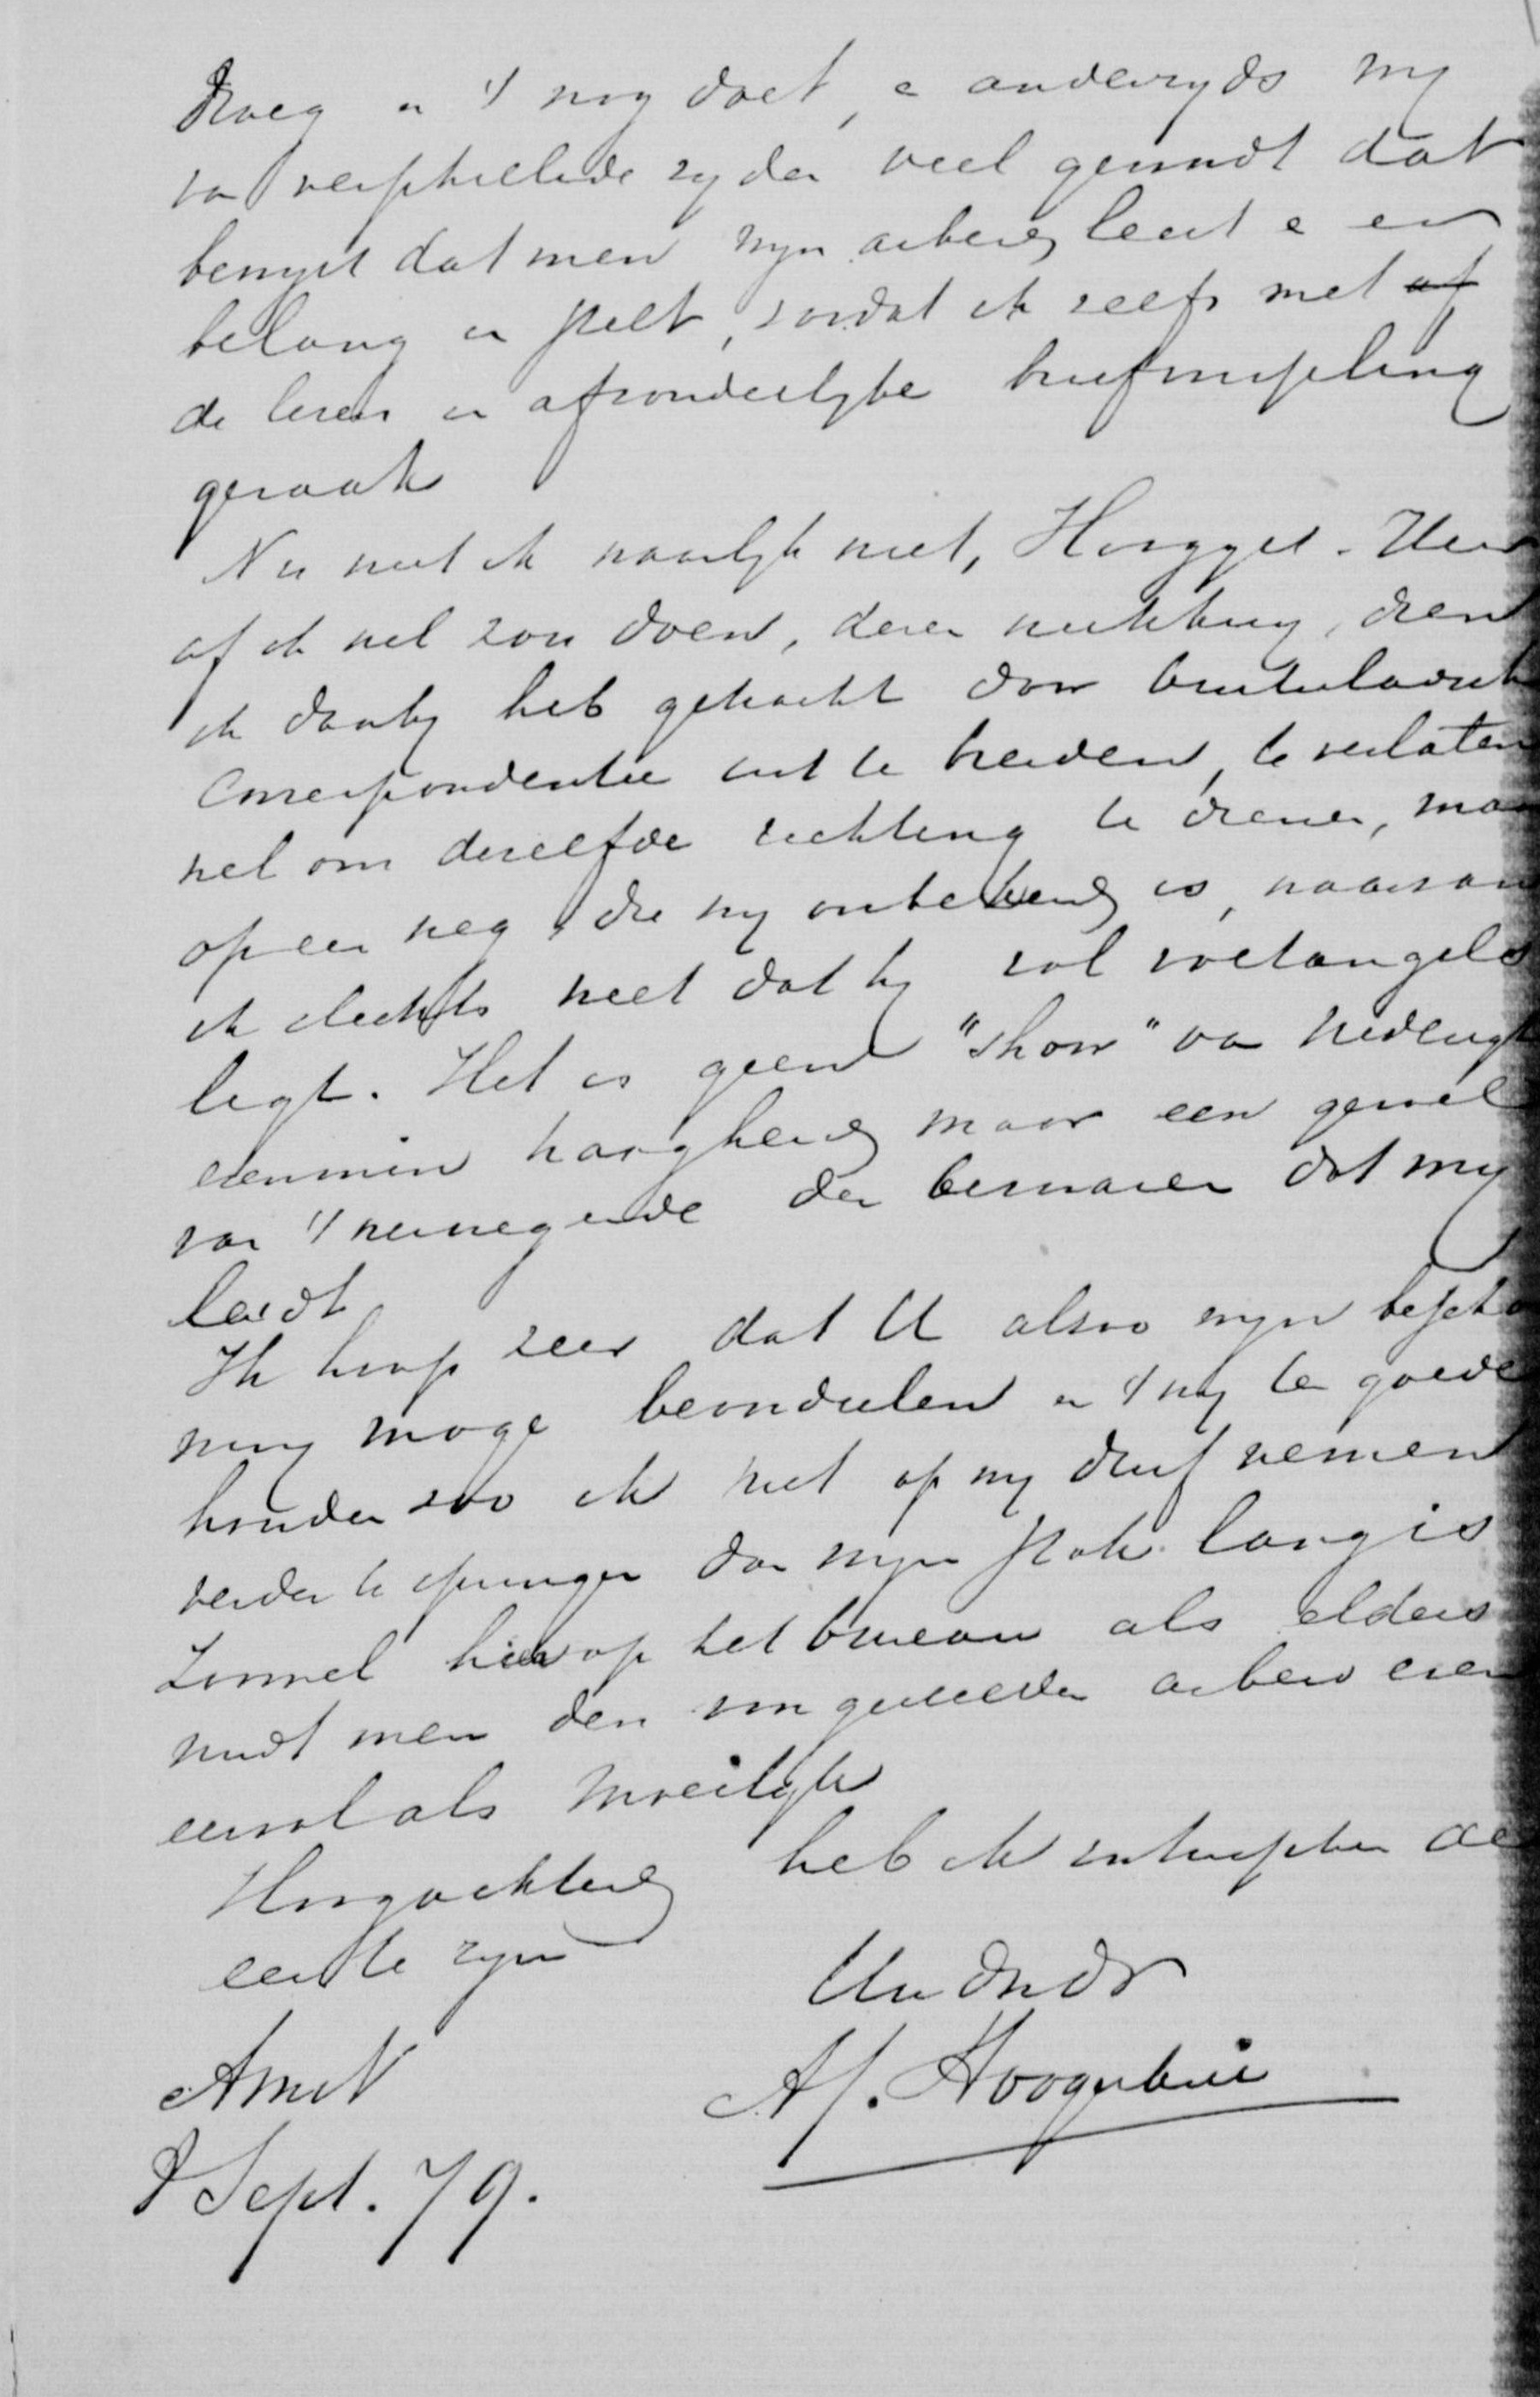 droeg en 't nog doet, e anderzyds my
van verschillende zyden veel gewerdt dat
bewyst dat men myn arbeid leest e er
belang in stelt, zoodat ik zelfs met af
de lezers in afzonderlyke briefwisseling
geraak
Nu weet ik waarlyk niet, Hooggel. Heer
of ik wel zou doen, dezen werkkring, dien
ik daarby heb getracht door buitenlandsche
Correspondentie uit te breiden, te verlaten
wel om dezelfde richting te dienen, maar
op een weg die my onbekend is, waarvan
ik slechts weet dat hy vol voetangels
ligt. Het is geen "show" van nederigheid
evenmin traagheid maar een gevoel
van 't overwegende der bezwaren dat my
leidt
Ik hoop zeer dat U alzoo myn beschou
wing moge beoordeelen en 't my ten goede
houden zoo ik niet op my durf nemen
verder te springen dan myn stok lang is
Zoowel hier op het bureau als elders
vindt men den arbeid even
eens als moeilyk
Hoogachtend heb ik intusschen de
eer te zyn
Uw dw dr
A J. Hoogenbirk
Amst
8 Sept. 79.